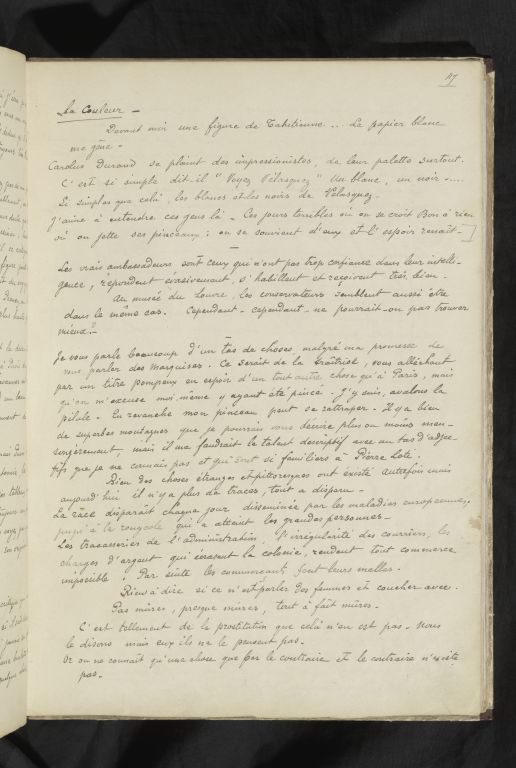 97
La Couleur _
Devant moi une figure de Tahitienne ... Le papier blanc
me gêne.
Carolus Durand se plaint des impressionistes, de leur palette surtout.
C'est si simple dit-il "Voyez Vélasquez" Un blanc, un noir ....
Si simples que celà, les blancs et les noirs de Vélasquez.
J'aime à entendre ces gens là - Les jours terribles où on se croit Bon à rien
où on jette ses pinceaux: on se souvient d'eux et l'espoir renait. _
Les vrais ambassadeurs sont ceux qui n'ont pas trop confiance dans leur intelli-
gence, répondent évasivement, s'habillent et reçoivent très bien.
Au musée du Louvre, les conservateurs semblent aussi être
dans le même cas. Cependant - cependant - ne pourrait-on pas trouver
mieux? -
Je vous parle beaucoup d'un tas de choses malgré ma promesse de
vous parler des Marquises. Ce serait de la traîtrise, vous alléchant
par un titre pompeux en espoir d'un tout autre chose qu'à Paris, mais
qu'on m'excuse moi-même y ayant été pincé. J'y suis, avalons la
pilule. En revanche mon pinceau peut se rattraper. Il y a bien
de superbes montagnes que je pourrais vous décrire plus ou moins men-
songèrement, mais il me faudrait le talent descriptif avec un tas d'adjec-
tifs que je ne connais pas et qui sont si familiers à Pierre Loti.
Bien des choses étranges et pittoresques ont existé autrefois mais
aujourd'hui il n'y a plus de traces, tout a disparu _
La race disparaît chaque jour disseminée par les maladies européennes,
jusqu'à la rougeole qui a atteint les grandes personnes _
Les tracasseries de l'administration, l'irrégularité des courriers, les
charges d'argent qui écrasent la colonie, rendent tout commerce
impossible. Par suite les commerçants font leurs malles.
Rien à dire si ce n'est parler des femmes et coucher avec.
Pas mûres, presque mûres, tout à fait mûres.
C'est tellement de la prostitution que celà n'en est pas. Nous
le disons mais eux ils ne le pensent pas.
Or on ne connaît qu'une chose que par le contraire et le contraire n'existe
pas.